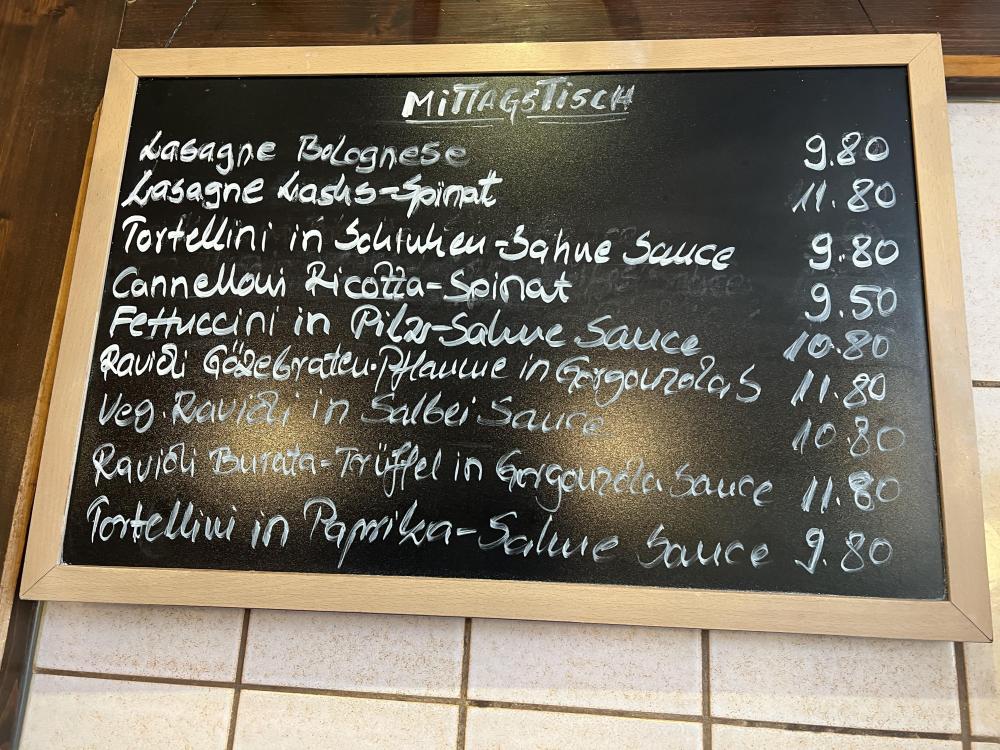 MITTAGSTISCH
Lasagne Bolognese 9.80
Lasagne Lachs-Spinat 11.80
Tortellini in Schinken-Sahne Sauce 9.80
Cannelloni Ricotta-Spinat 9.50
Fettuccini in Pilz-Sahne Sauce 10.80
Ravioli Gänsebraten-Pflaume in Gorgonzola S 11.80
Veg. Ravioli in Salbei Sauce 10.80
Ravioli Burata-Trüffel in Gorgonzola Sauce 11.80
Tortellini in Paprika-Sahne Sauce 9.80